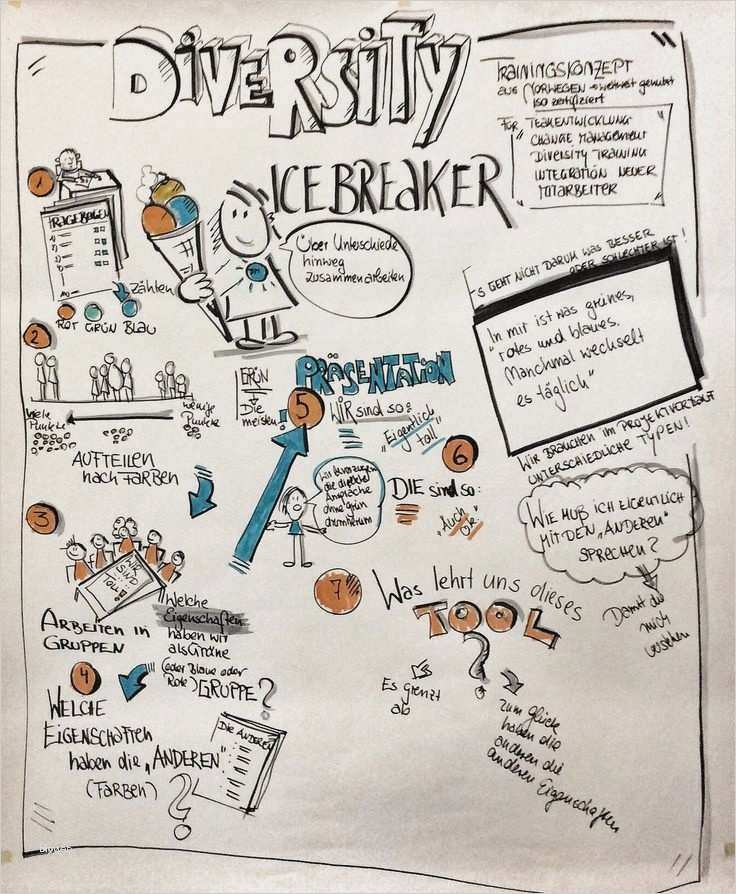 DIVERSITY
ICEBREAKER
TRAININGSKONZEPT
aus NORWEGEN → weltweit genutzt
ISO zertifiziert
FÜR TEAMENTWICKLUNG
CHANGE MANAGEMENT
DIVERSITY TRAINING
INTEGRATION NEUER
MITARBEITER
1
FRAGEBOGEN
zählen
ROT GRÜN BLAU
Über Unterschiede
hinweg
zusammenarbeiten
ES GEHT NICHT DARUM WAS BESSER
ODER SCHLECHTER IST!
In mir ist was grünes,
"rotes und blaues.
Manchmal wechselt
es täglich"
WIR BRAUCHEN IM PROJEKTVERLAUF
UNTERSCHIEDLICHE TYPEN!
WIE MUß ICH EIGENTLICH
MIT DEN "ANDEREN"
SPRECHEN?
Damit die
mich
verstehen
2
viele
Punkte
wenige
Punkte
AUFTEILEN
nach FARBEN
3
WIR
SIND
TOLL!
ARBEITEN IN
GRUPPEN
Welche
Eigenschaften
haben wir
als Grüne
(oder Blaue oder
Rote) GRUPPE?
4
WELCHE
EIGENSCHAFTEN
haben die "ANDEREN"
(FARBEN)
?
DIE ANDEREN
GRÜN
Die
meisten!
5
PRÄSENTATION
WIR sind so:
"Eigentlich
toll"
Wir bevorzugen
die direkte
Ansprache
ohne grün
drumherum
6
DIE sind so:
"Auch
ok"
7
Was lehrt uns dieses
TOOL
?
Es grenzt
ab
zum Glück
haben die
anderen die
anderen Eigenschaften